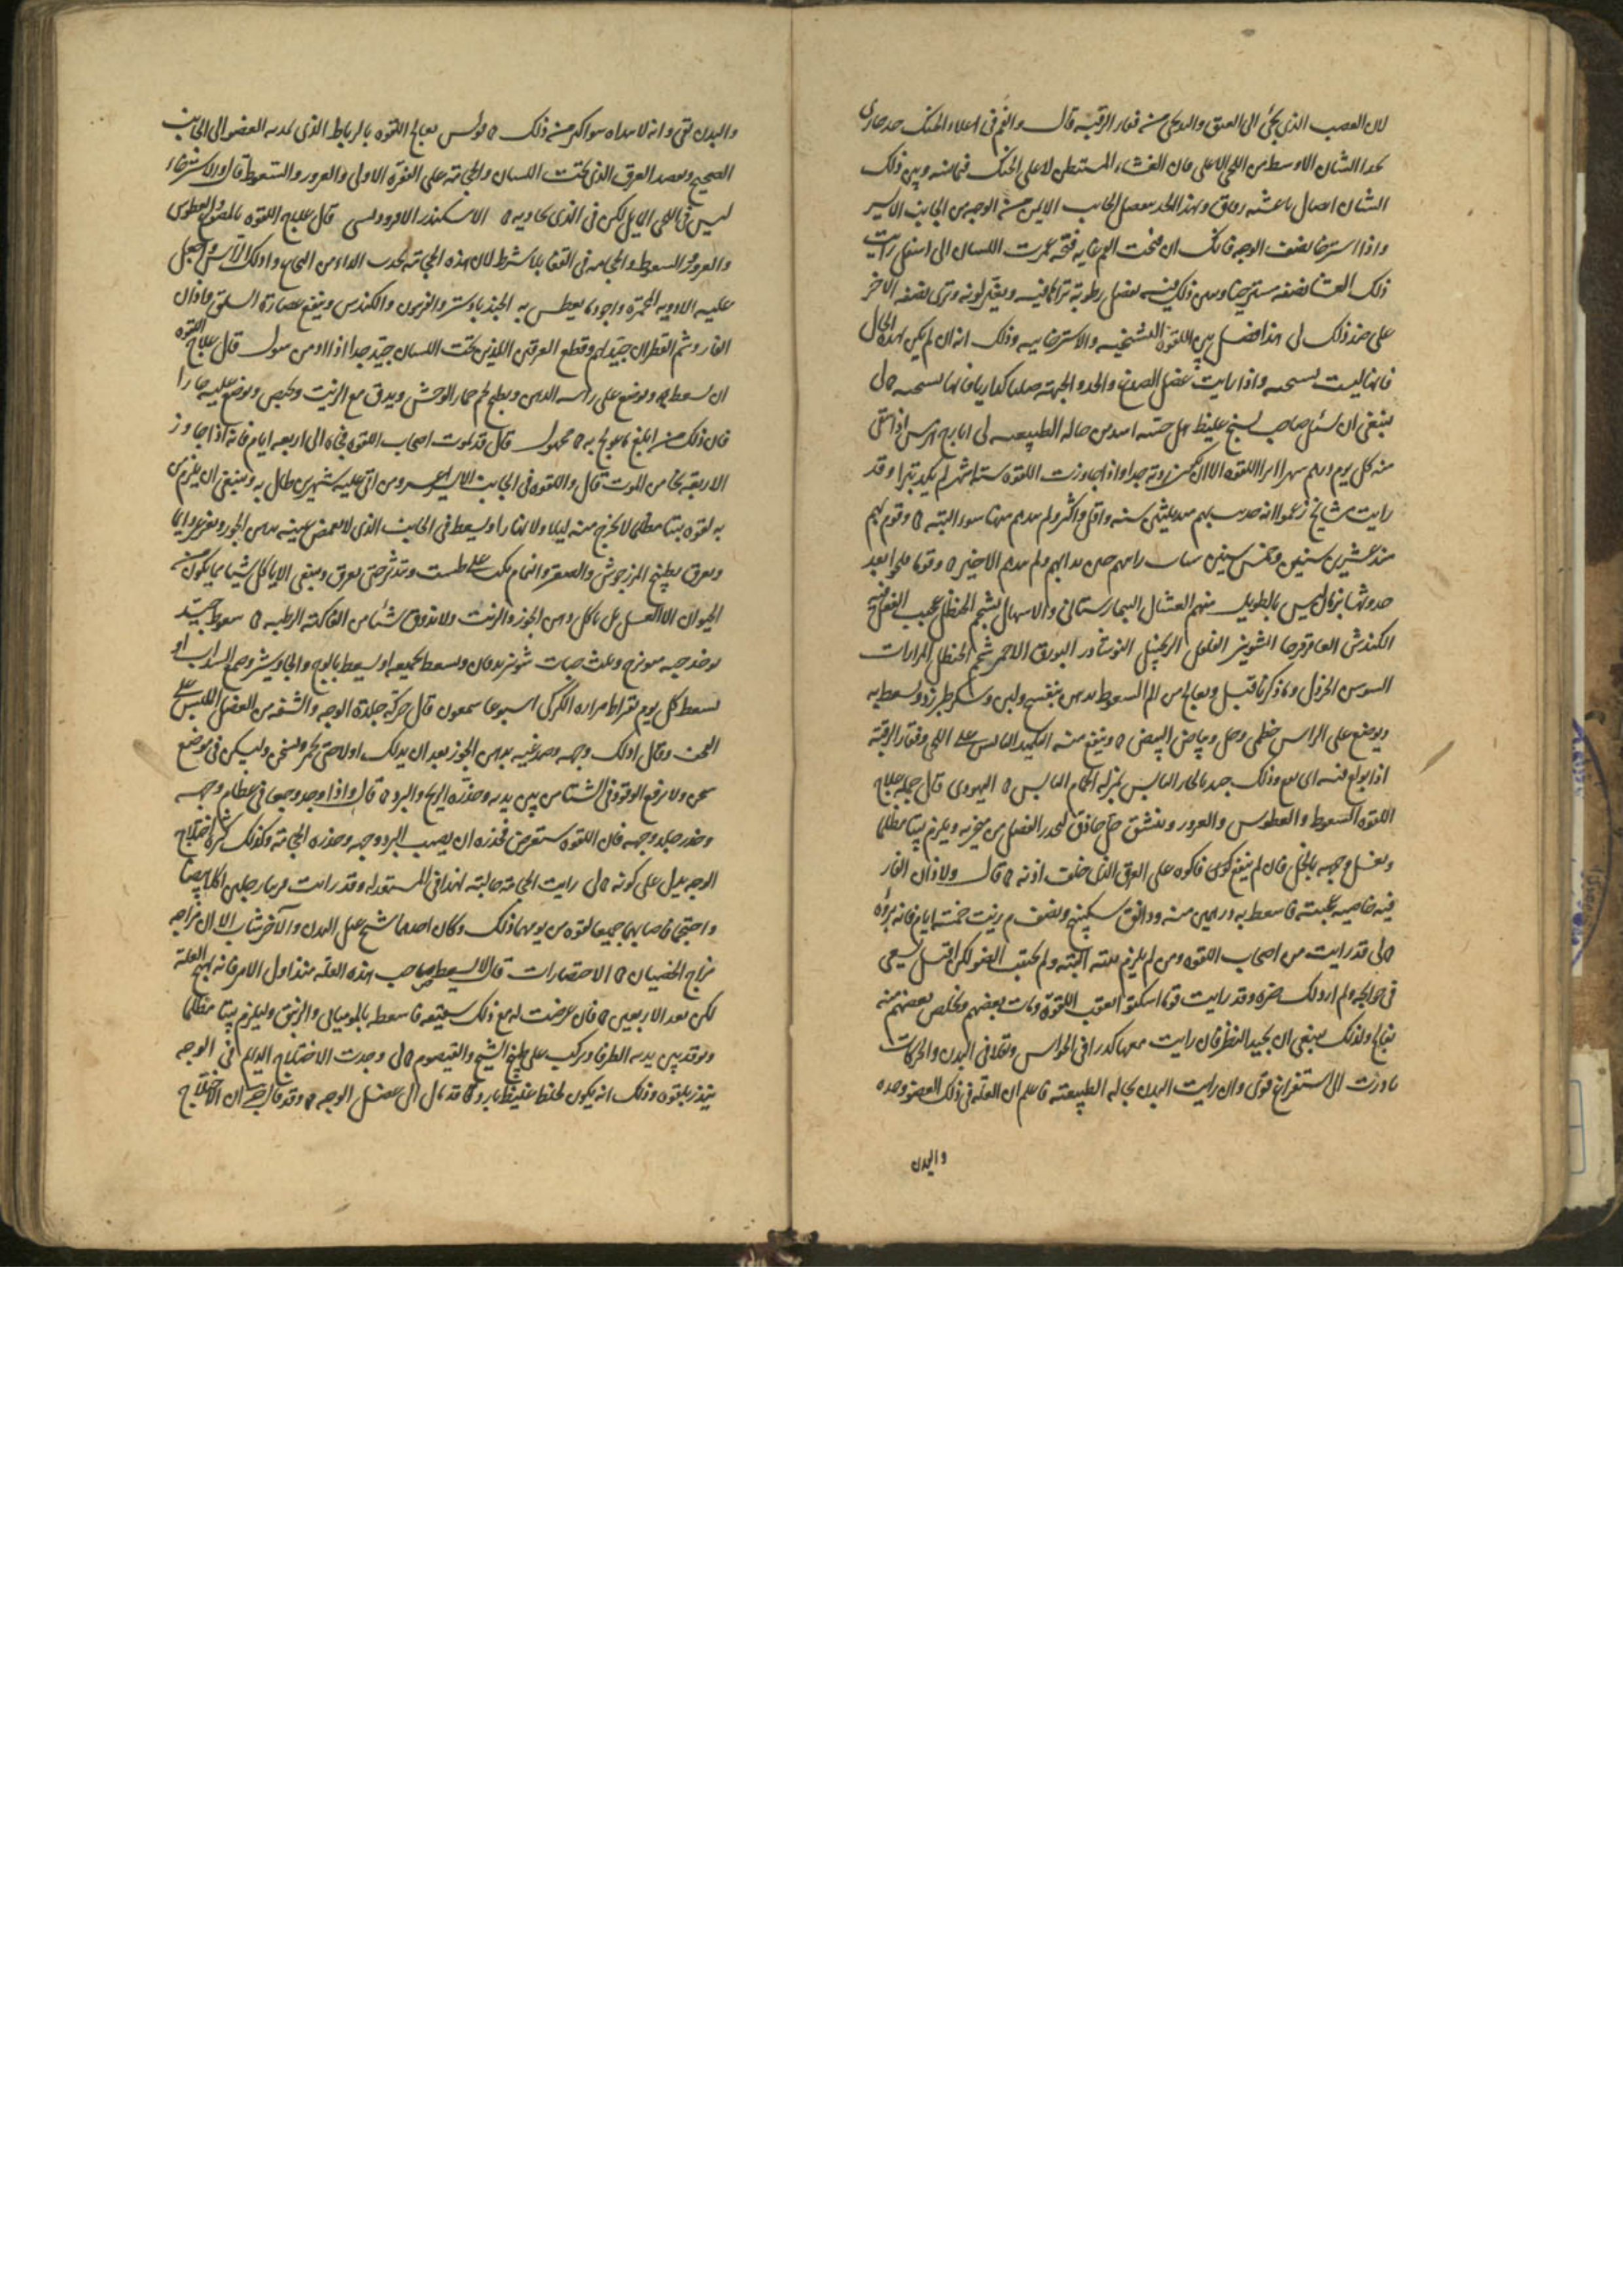 لان العصب الذى يجئ الى العنق والذى يجئ منه فقار الرقبه قال والفم فى اعلاء الحنك حد حارى
الاوسط من اللحى الاعلى فان الغشاء المستبطن لاعلى الحنك فيما بينه وبين ذلك
اتصال باغشيه رقاق وبهذا الحد يفصل الجانب الايمن من الوجه من الجانب الايسر
واذا استرخا نصف الوجه فانك ان فتحت الفم غايه فتحه وغمرت اللسان الى اسفل رايت
ذلك الغشا نصفه مسترخيا ويبين ذلك فيه بفضل رطوبة تراها فيه وبغير لونه وترى نصفه الاخر
على ضد ذلك لى هذا فصل بين اللقوه التشنجيه والاسترخاييه وذلك انه ان لم يكن بهذه الحال
فانها ليست واذا رايت عضل الصدغ والخد والجبهة صلبا فانها تشنجيه لى
ينبغى ان يسئل صاحب تشنج غليظ هل حسه اشد من حاله الطبيعيه لى ايارج هرمس اذا سقى
منه كل يوم درهم شهرا ابرا اللقوه الا ان تكون ردية جدا واذا جاوزت اللقوه ستة اشهر لم يكد تبرا وقد
رايت مشايخ زعموا انه حدث بهم منذ ثلثين سنه واقل واكثر ولم ينلهم منها سوء البته وقوم لهم
منذ عشرين سنين وخمس سنين ولم الاخير وقوما فلجوا بعد
حدوثها بزمان ليس بالطويل منهم العشال البيمارستانى والاسهال بشحم الحنظل عجيب الفعل فيه
الكندش العاقرقرحا الشونيز الفلفل الزنجبيل النوشادر البورق الاحمر شحم الحنظل المرارات
السوس الخردل وما ذكرنا قبل ويعالج من الم السعوط بدهن بنفسج ولبن وسكر طبرزد ويسعط به
ويوضع على الراس خطمى وخل وبياض البيض وينفع منه التكميد اليابس على اللحى وفقار الرقبة
اذا بولغ فيه وذلك جيد بالحار اليابس بمنزله الحمام اليابس اليهودى قال جملة علاج
اللقوه السعوط والعطوس والغرور وينشق خل حاذق ليحدر الفضل من منخريه ويلزم بيتا مظلما
ويغسل وجهه بالخل فان لم ينفع كوى فاكوه على العرق الذى خلف اذنه قال ولاذان الفار
فيه خاصيه عجيبة فاسعط به درهمين منه ودانق سكبينج ونصف درهم زيت خمسة ايام فانه برؤه
لى قد رايت من اصحاب اللقوه ومن لم يلزم بيته البتة ولم يجتنب الضو لكن اقبل يسعى
فى حوايجه ولم ار ذلك ضره وقد رايت قوما اسكتوا بعقب اللقوة ومات بعضهم وتخلص بعضهم منه
بفالج ولذلك ينبغى ان يجيد النظر فان رايت معها كدرا فى الحواس وثقلا فى البدن والحركات
بادرت الى استفراغ قوى وان رايت البدن بحاله الطبيعته فاعلم ان العله فى ذلك العضو وحده
والبدن
والبدن نقى وانه لا يبداه سو اكثر من ذلك بولس يعالج اللقوه بالرباط الذى يمد به العضو الى الجانب
الصحيح وبفصد العرق الذى تحت اللسان والحجامة على الفقرة الاولى والغرور والسعوط قال والاسترخاء
ليس فى اللحى المايل لكن فى الذى يحاذيه الاسكندر الافروديسى قال علاج اللقوه بالمضوغ والعطوس
والغرور والسعوط والحجامه فى القفا بلا شرط لان هذه الحجامة تجذب الداء من الحاب وادلك الراس واجعل
عليه الادويه المحمرة واجود ما يعطس به الجندبادستر والفربيون والكندس وينفع عصارة السلق واذان
الفار وشم القطران جيد لهم وقطع العرقين اللذين تحت اللسان جيد جدا اذا ازمن سول قال علاج اللقوه
ان يسعط ويوضع على راسه الدهن ويطبخ لحم حمار الوحش ويدق مع الزيت ويوضع عليه حارا
فان ذلك من ابلغ ما عولج به مجهول قال قد يموت اصحاب اللقوه فجاه الى اربعه ايام فانه اذا جاوز
الاربعة نجا من الموت قال واللقوه فى الجانب الايسر اعسر ومن اتى عليه شهرين طال به وينبغى ان يلزم من
به لقوه بيتا مظلما لا يخرج منه ليلا ولا نهارا ويسعط فى الجانب الذى لا يغمض عينه بدهن الجوز ويغرغر دايما
ويعرق بطبيخ المرزجوش والصعتر والنمام يكب على طست وتدثر حتى يعرق وينبغى الا ياكل شيا مما يكون من
الحيوان الا العسل بل ياكل دهن الجوز والزيت ولا يذوق شيا من الفاكهة الرطبه سعوط جيد
يوخذ حبه ميوزج وثلث حبات شونيز يدقان ويسعط بجميعه او يسعط بالوج والجاوشير وصمغ السداب او
يسعط كل يوم بقيراط مراره الكركى اسبوعا شمعون قال حركة جلدة الوجه والشفه من العضل اللبس على
وقال ادلك وجهه وصدغيه بدهن الجوز بعد ان يدلك اولا حتى يحمر ويسخن وليسكن فى موضع
سخن ولا يرفع الوقود فى الشتا من بين يديه وحذره الريح والبرد قال واذا وجد وجعا فى عظام وجهه
وخدر جلد وجهه فان اللقوه ستعرض فحذره ان يصيب البرد وجهه وحذره الحجامة وكذلك كثرة اختلاج
الوجه يدل على كونه لى رايت الحجامة جالبة لهذا فى المستعد له وقد رايت قريبا رجلين اكلا بيضا
واحتجما فاصابهما جميعا لقوه من يومهما ذلك وكان احدهما شيخ عبل البدن والاخر شاب الا ان مزاجه
مزاج الخصيان الاختصارات قال لا يسعط صاحب هذه العله منذ اول الامر فانه يهيج العلة
لكن بعد الاربعين فان عرضت له مع ذلك شقيقه فاسعطه بالموميائى والزنبق وليلزم بيتا مظلما
ويوقد بين يديه الطرفا ويركب على طبيخ الشيح والقيصوم لى وجدت الاختلاج الدايم فى الوجه
ينذر بلقوه وذلك انه يكون لخلط غليظ بارد قد مال الى عضل الوجه وقد قال ج ان الاختلاج